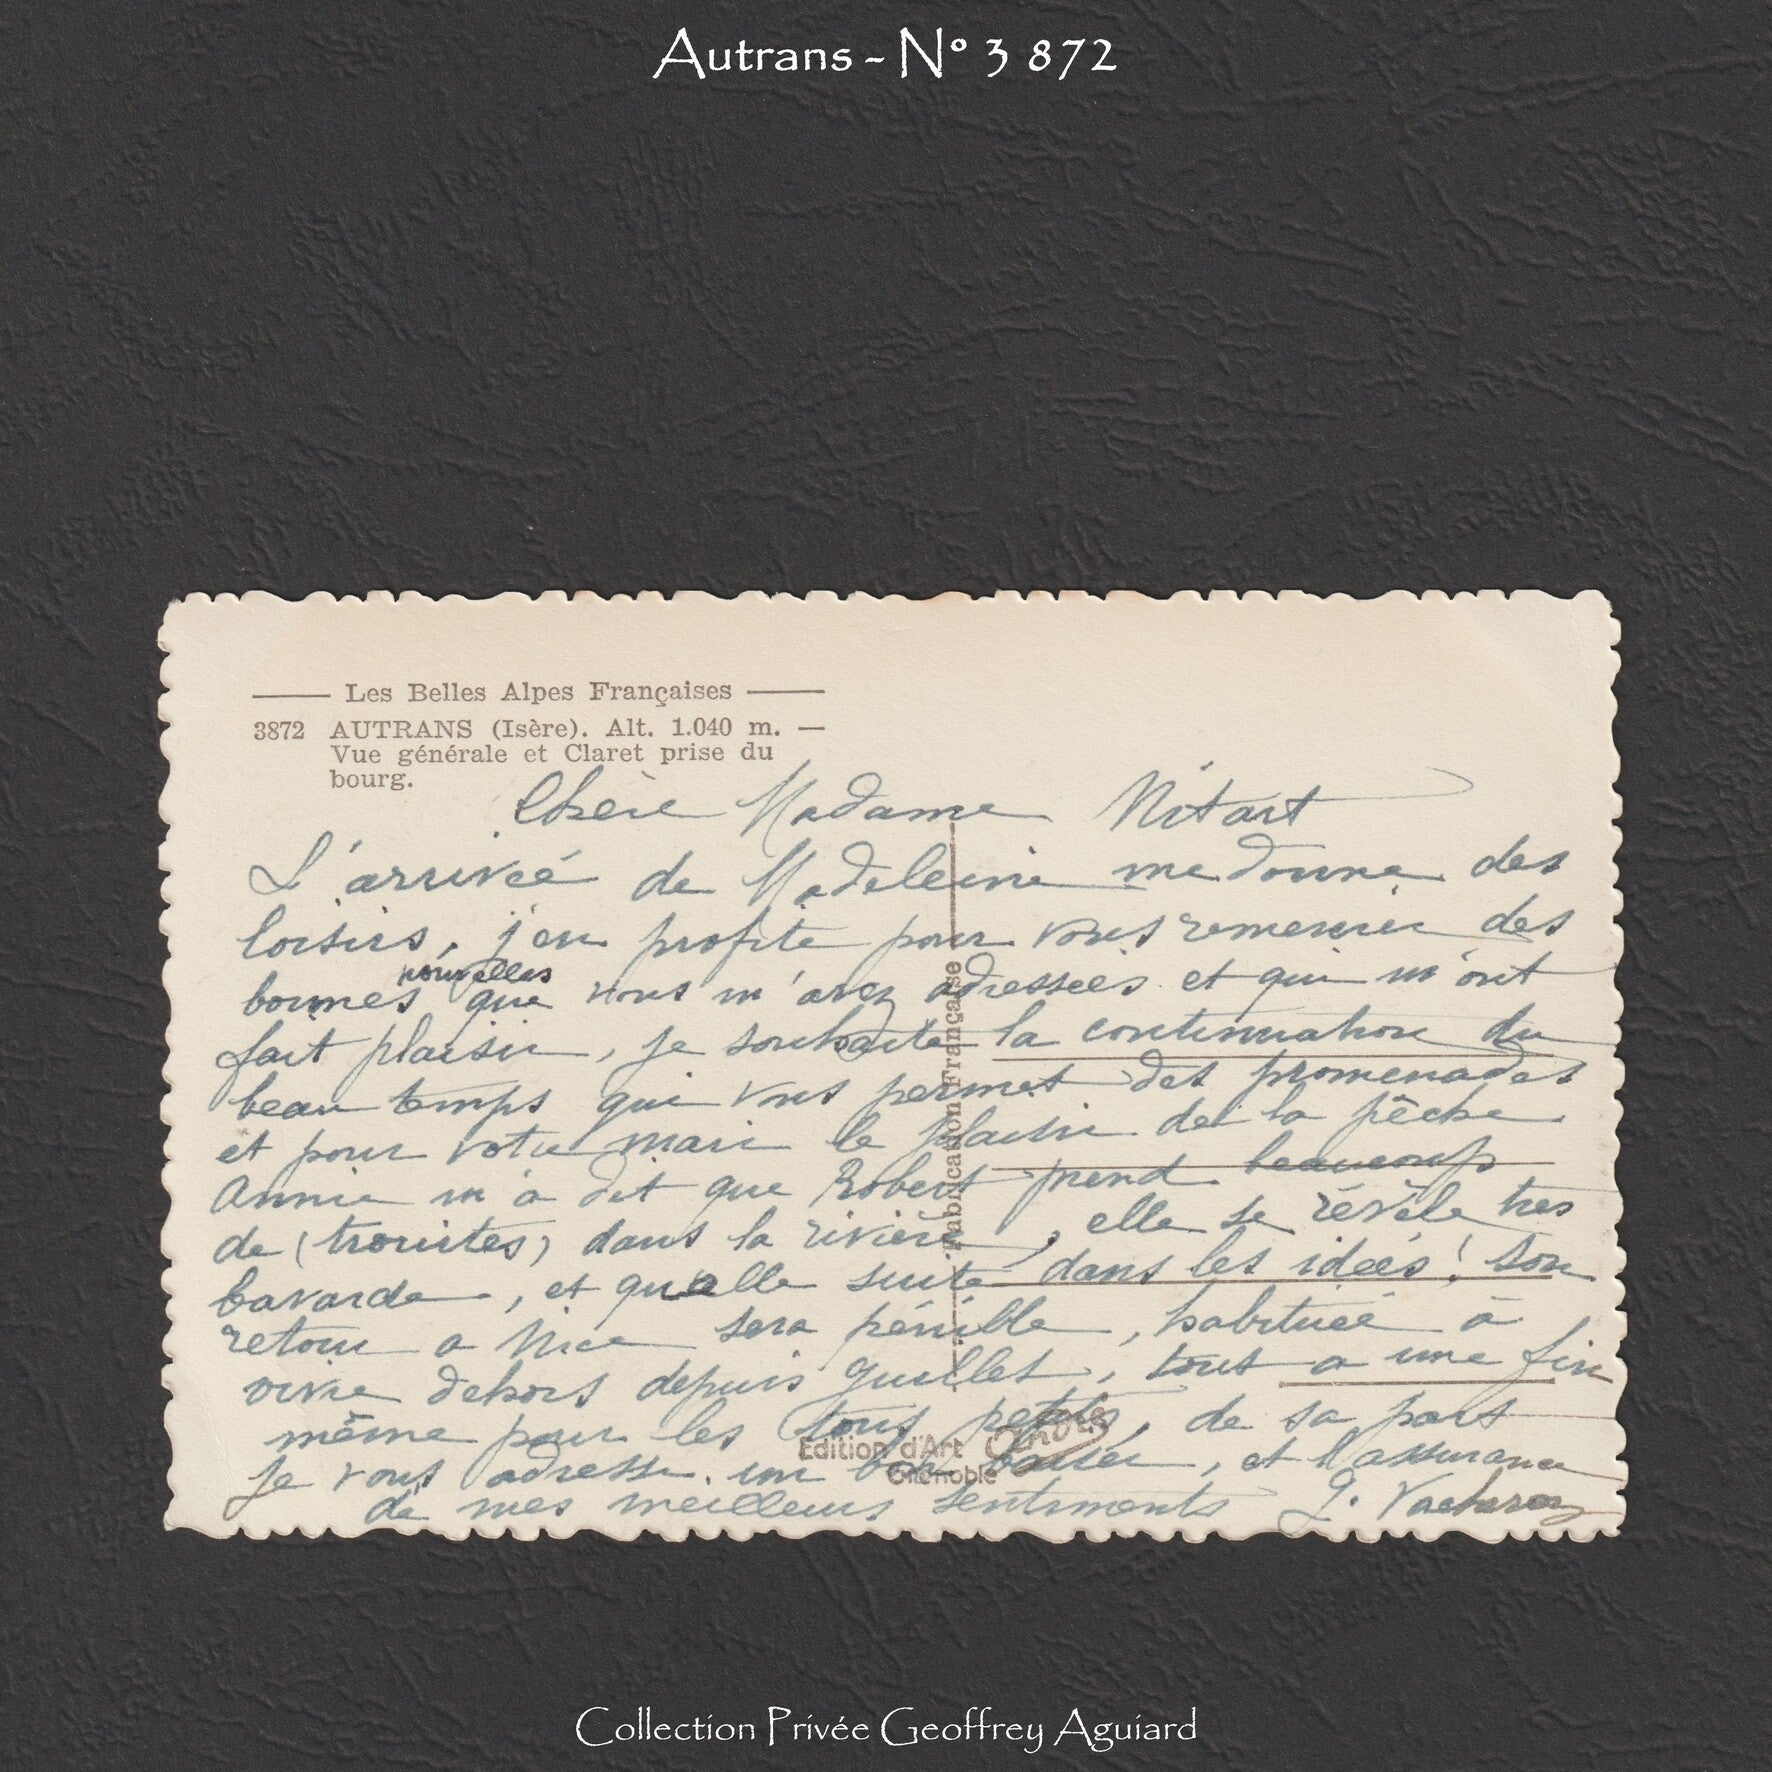 Autrans - N° 3 872
Les Belles Alpes Françaises
3872 AUTRANS (Isère). Alt. 1.040 m. —
Vue générale et Claret prise du
bourg.
Chère Madame Nitart
L'arrivée de Madeleine me donne des
loisirs, j'en profite pour vous remercier des
bonnes nouvelles que vous m'avez adressées et qui m'ont
fait plaisir, je souhaite la continuation du
beau temps qui vous permet des promenades
et pour votre mari le plaisir de la pêche
Annie m'a dit que Robert prend beaucoup
de (trouites) dans la rivière, elle se révèle très
bavarde, et quelle suite dans les idées! Son
retour a Nice sera pénible, habituée à
vivre dehors depuis Juillet, tout a une fin
même pour les tous petits, de sa part
je vous adresse un bon baiser, et l'assurance
de mes meilleurs sentiments
Fabrication Française
Edition d'Art
Grenoble
Collection Privée Geoffrey Aguiard